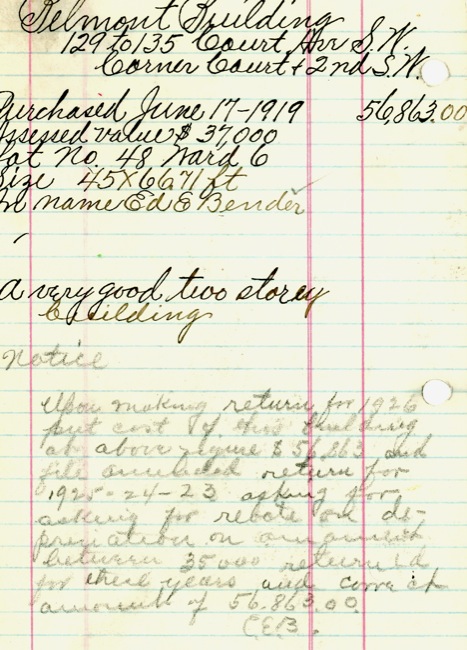 Belmont Building
129 to 135 Court Ave S.W.
Corner Court & 2nd S.W.
Purchased June 17-1919 56,863.00
Assessed value $ 37,000
Lot No. 48 Ward 6
Size 45X66.71 ft
In name Ed E Bender
A very good two storey
building
Notice
Upon making return for 1926
put cost of this building
at above figure $56,863 and
file amended return for
1925-24-23 asking for
asking for rebate on de-
preciation on amount
between 35000 returned
for these years and correct
amount of 56.863.00
CEB.